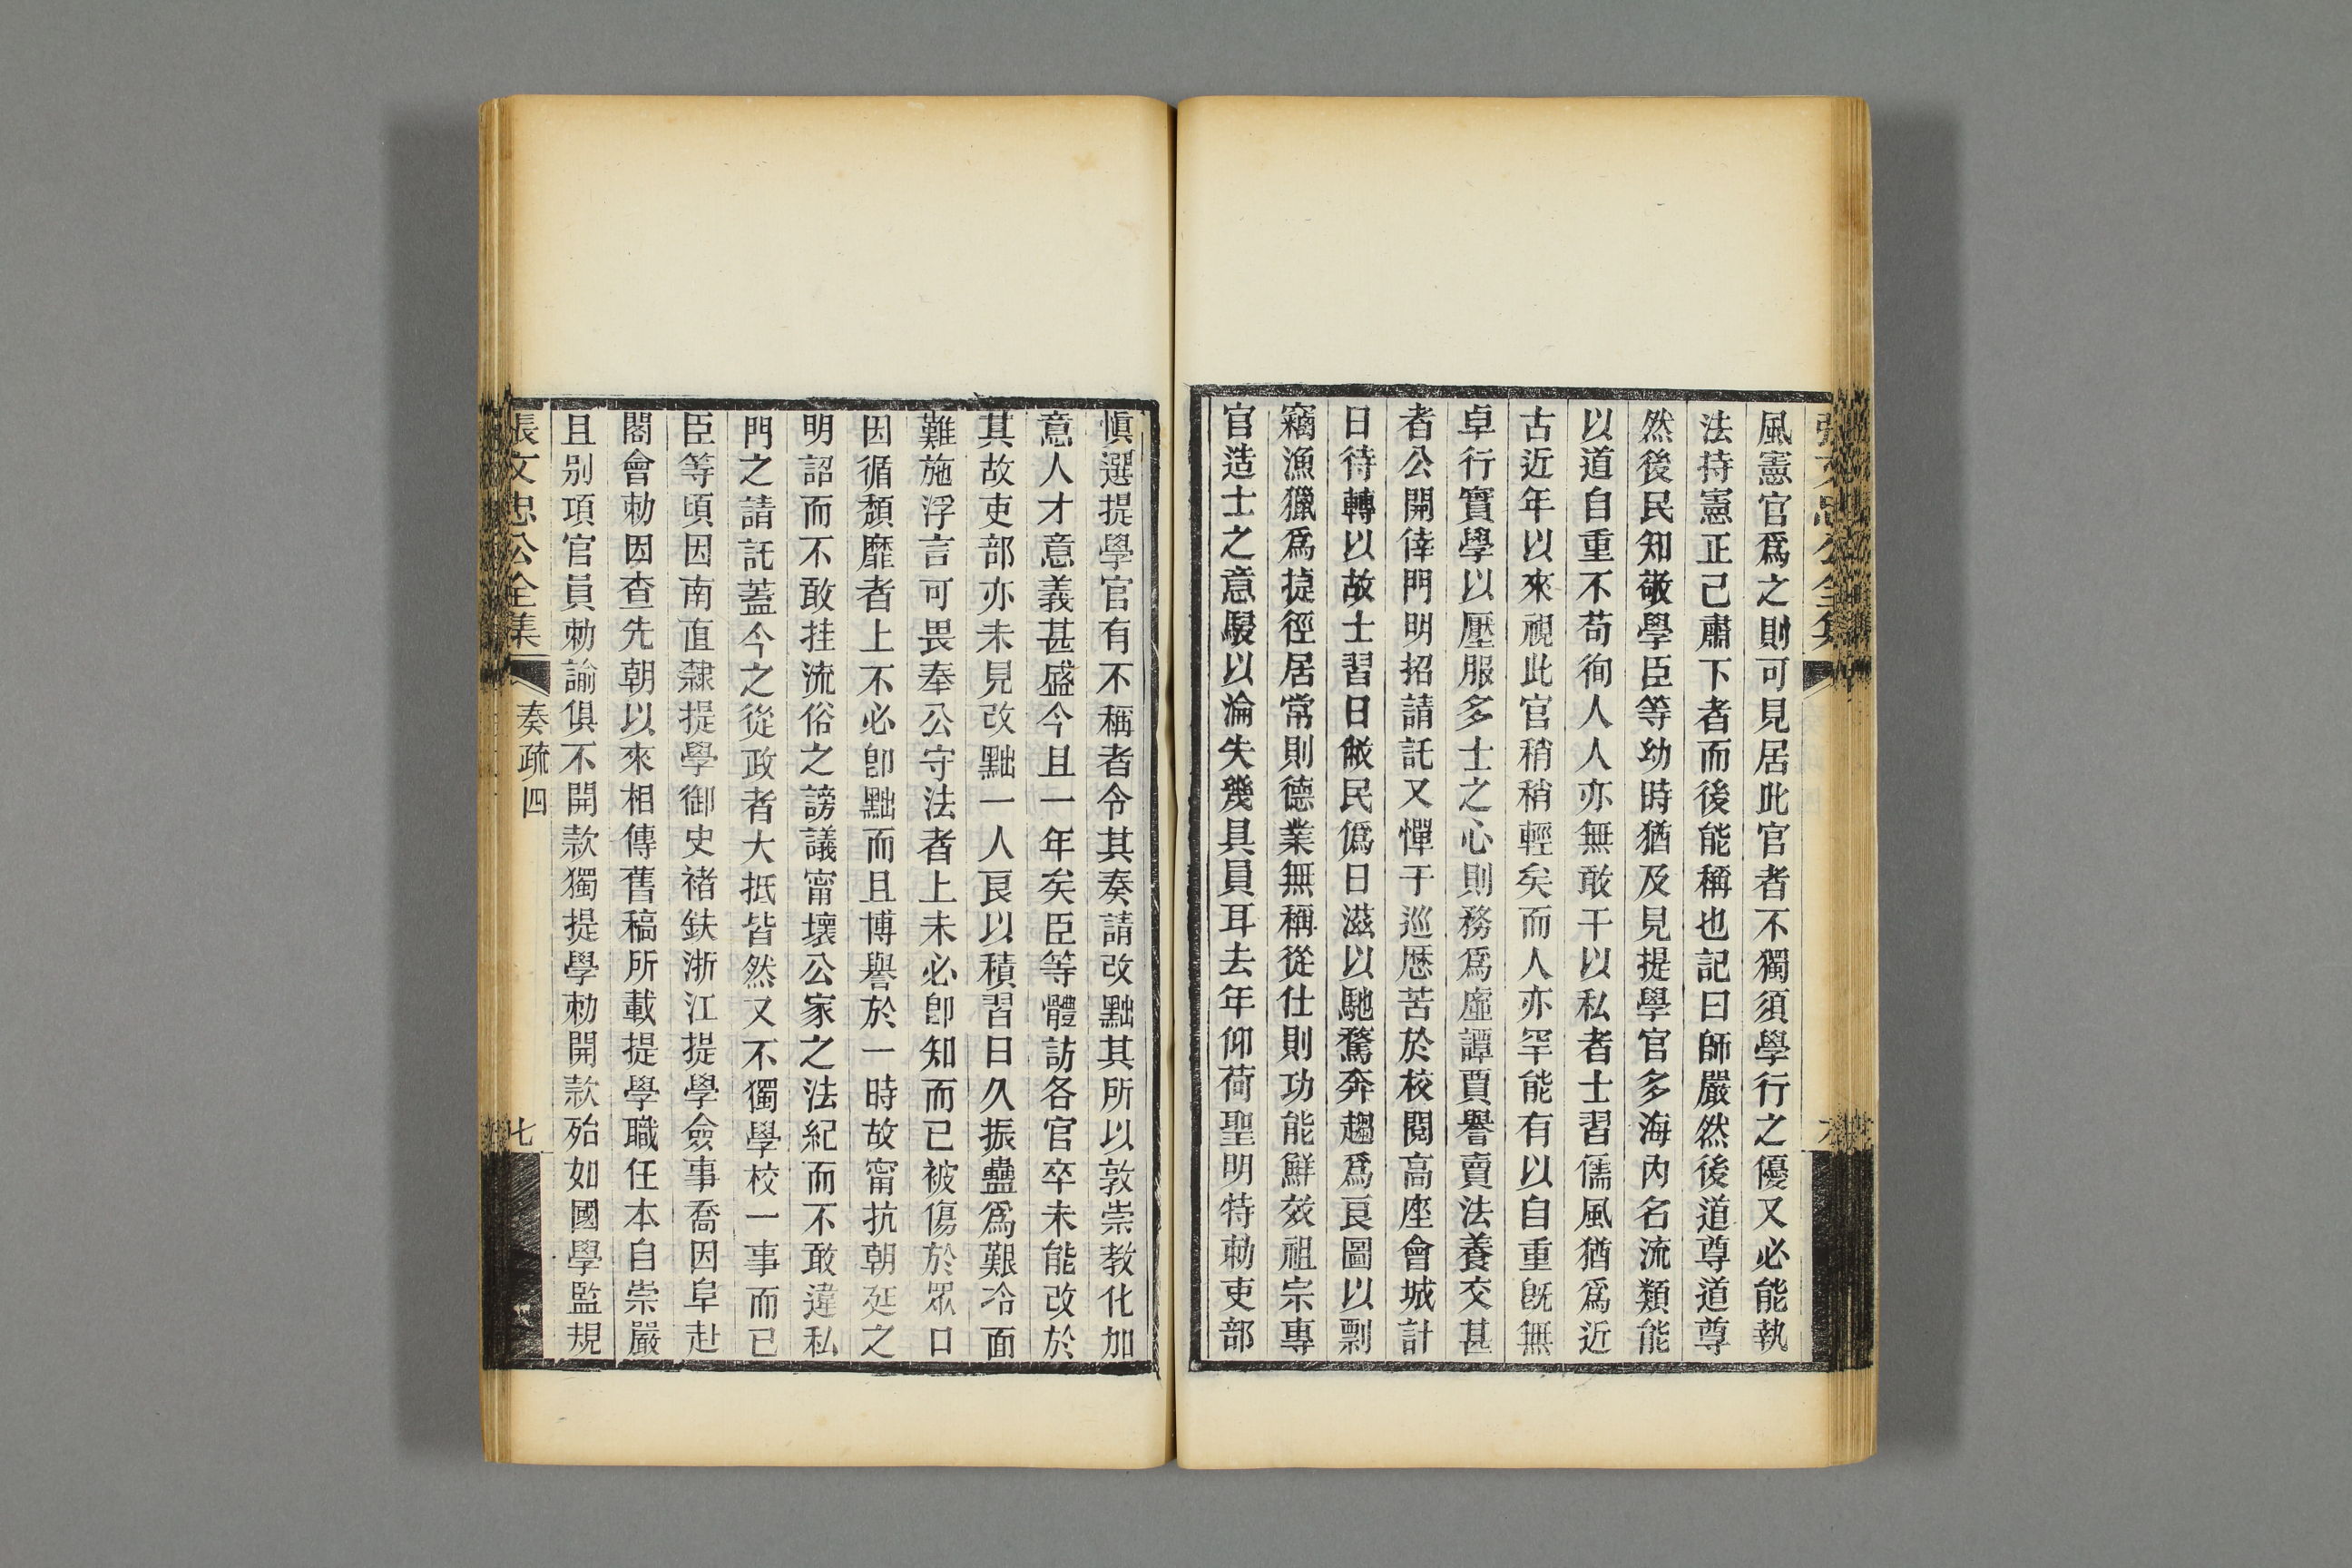 風憲官爲之則可見居此官者不獨須學行之優又必能執
法持憲正己肅下者而後能稱也記曰師嚴然後道尊道尊
然後民知敬學臣等幼時猶及見提學官多海內名流類能
以道自重不苟徇人人亦無敢干以私者士習儒風猶爲近
古近年以來視此官稍稍輕矣而人亦罕能有以自重旣無
卓行實學以壓服多士之心則務爲虛譚賈譽賣法養交甚
者公開倖門明招請託又憚于巡歷苦於校閱高座會城計
日待轉以故士習日敝民僞日滋以馳騖奔趨爲良圖以剽
竊漁獵爲捷徑居常則德業無稱從仕則功能鮮效祖宗專
官造士之意駸以淪失幾具員耳去年仰荷聖明特勅吏部
愼選提學官有不稱者令其奏請改黜其所以敦崇教化加
意人才意義甚盛今且一年矣臣等體訪各官卒未能改於
其故吏部亦未見改黜一人良以積習日久振蠱爲艱冷面
難施浮言可畏奉公守法者上未必卽知而已被傷於眾口
因循頹靡者上不必卽黜而且博譽於一時故甯抗朝廷之
明詔而不敢挂流俗之謗議甯壞公家之法紀而不敢違私
門之請託蓋今之從政者大抵皆然又不獨學校一事而已
臣等頃因南直隸提學御史褚鈇浙江提學僉事喬因阜赴
閣會勅因查先朝以來相傳舊稿所載提學職任本自崇嚴
且别項官員勅諭俱不開款獨提學勅開款殆如國學監規
張文忠公全集 奏疏四 七